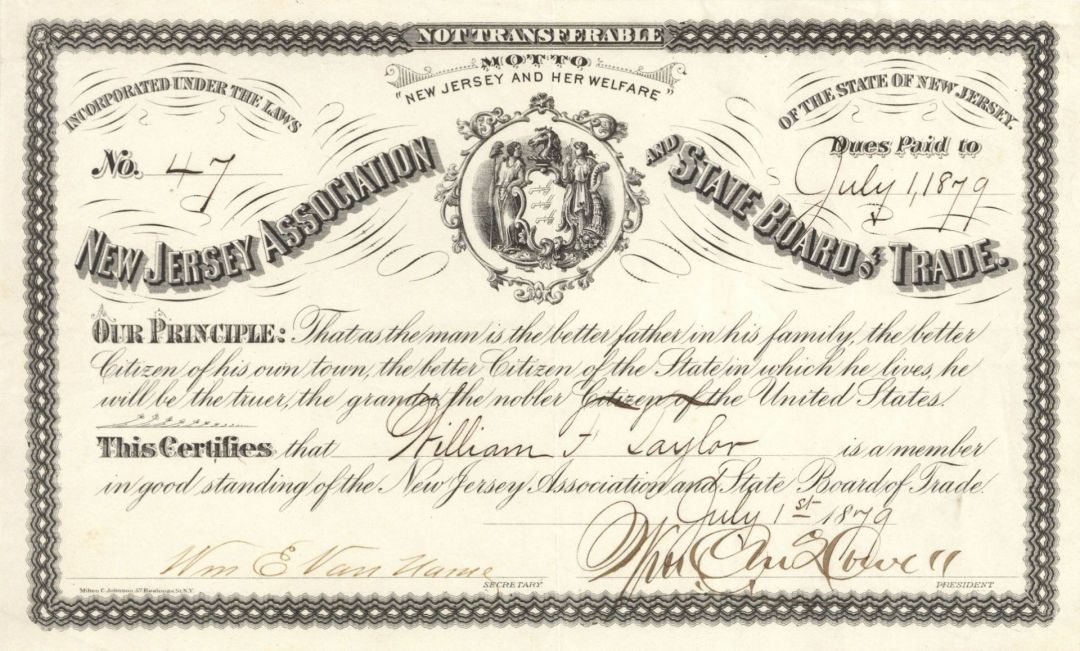 NOT TRANSFERABLE
MOTTO
"NEW JERSEY AND HER WELFARE"
INCORPORATED UNDER THE LAWS
OF THE STATE OF NEW JERSEY.
No. 47
Dues Paid to
July 1, 1879
NEW JERSEY ASSOCIATION AND STATE BOARD OF TRADE.
OUR PRINCIPLE: That as the man is the better father in his family, the better
Citizen of his own town, the better Citizen of the State in which he lives, he
will be the truer, the grander, the nobler Citizen of the United States.
This Certifies that William F Taylor is a member
in good standing of the New Jersey Association and State Board of Trade.
July 1st 1879
Wm E Van Name
SECRETARY
PRESIDENT
Milton C. Johnson 57 Beekman St. N.Y.